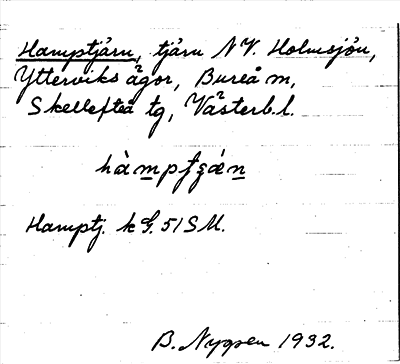 Hamptjärn, tjärn NV. Holmsjön,
Ytterviks ägor, Bureå m,
Skellefteå tg, Västerb.l.
Hamptj. kG. 51 SM.
B. Nygren 1932.